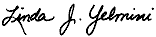 Linda J. Yelmini